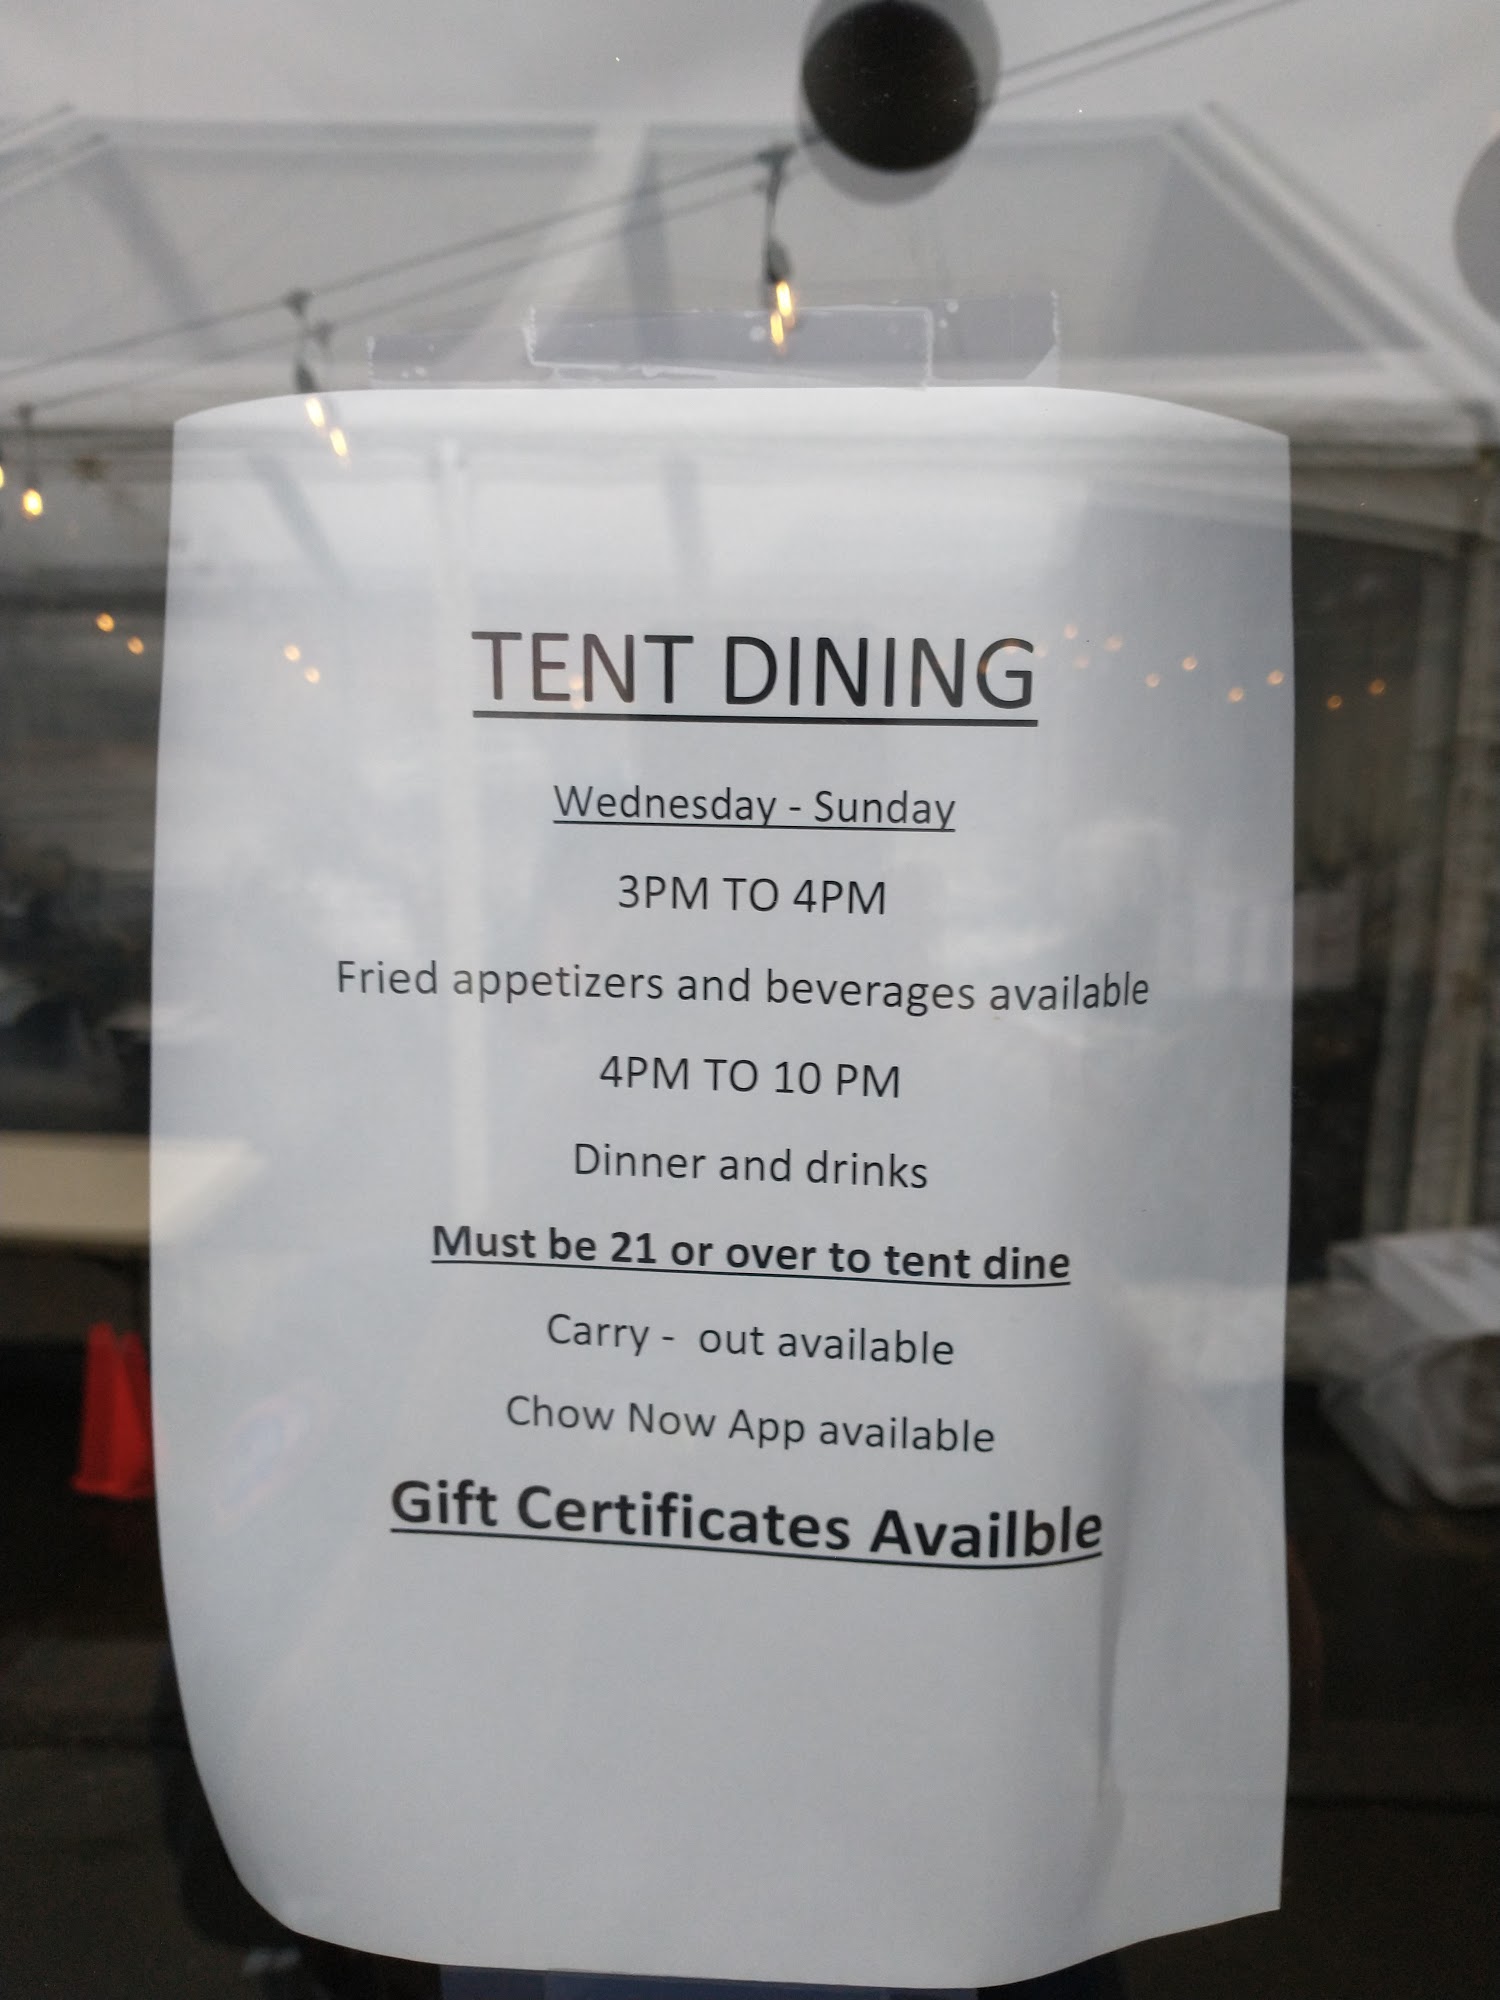 TENT DINING
Wednesday - Sunday
3PM TO 4PM
Fried appetizers and beverages available
4PM TO 10 PM
Dinner and drinks
Must be 21 or over to tent dine
Carry -  out available
Chow Now App available
Gift Certificates Availble